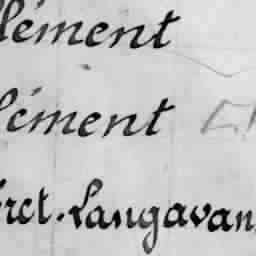 lément
lément
ret. Langavan